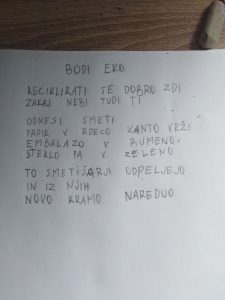 BODI EKO
RECIKLIRATI SE DOBRO ZDI
ZAKAJ NEBI TUDI TI
ODNESI SMETI
PAPIR V RDEČO KANTO VRŽI
EMBALAŽO V RUMENO,
STEKLO PA V ZELENO
TO SMETIŠARJI ODPELJEJO
IN IZ NJIH
NOVO KRAMO NAREDIJO